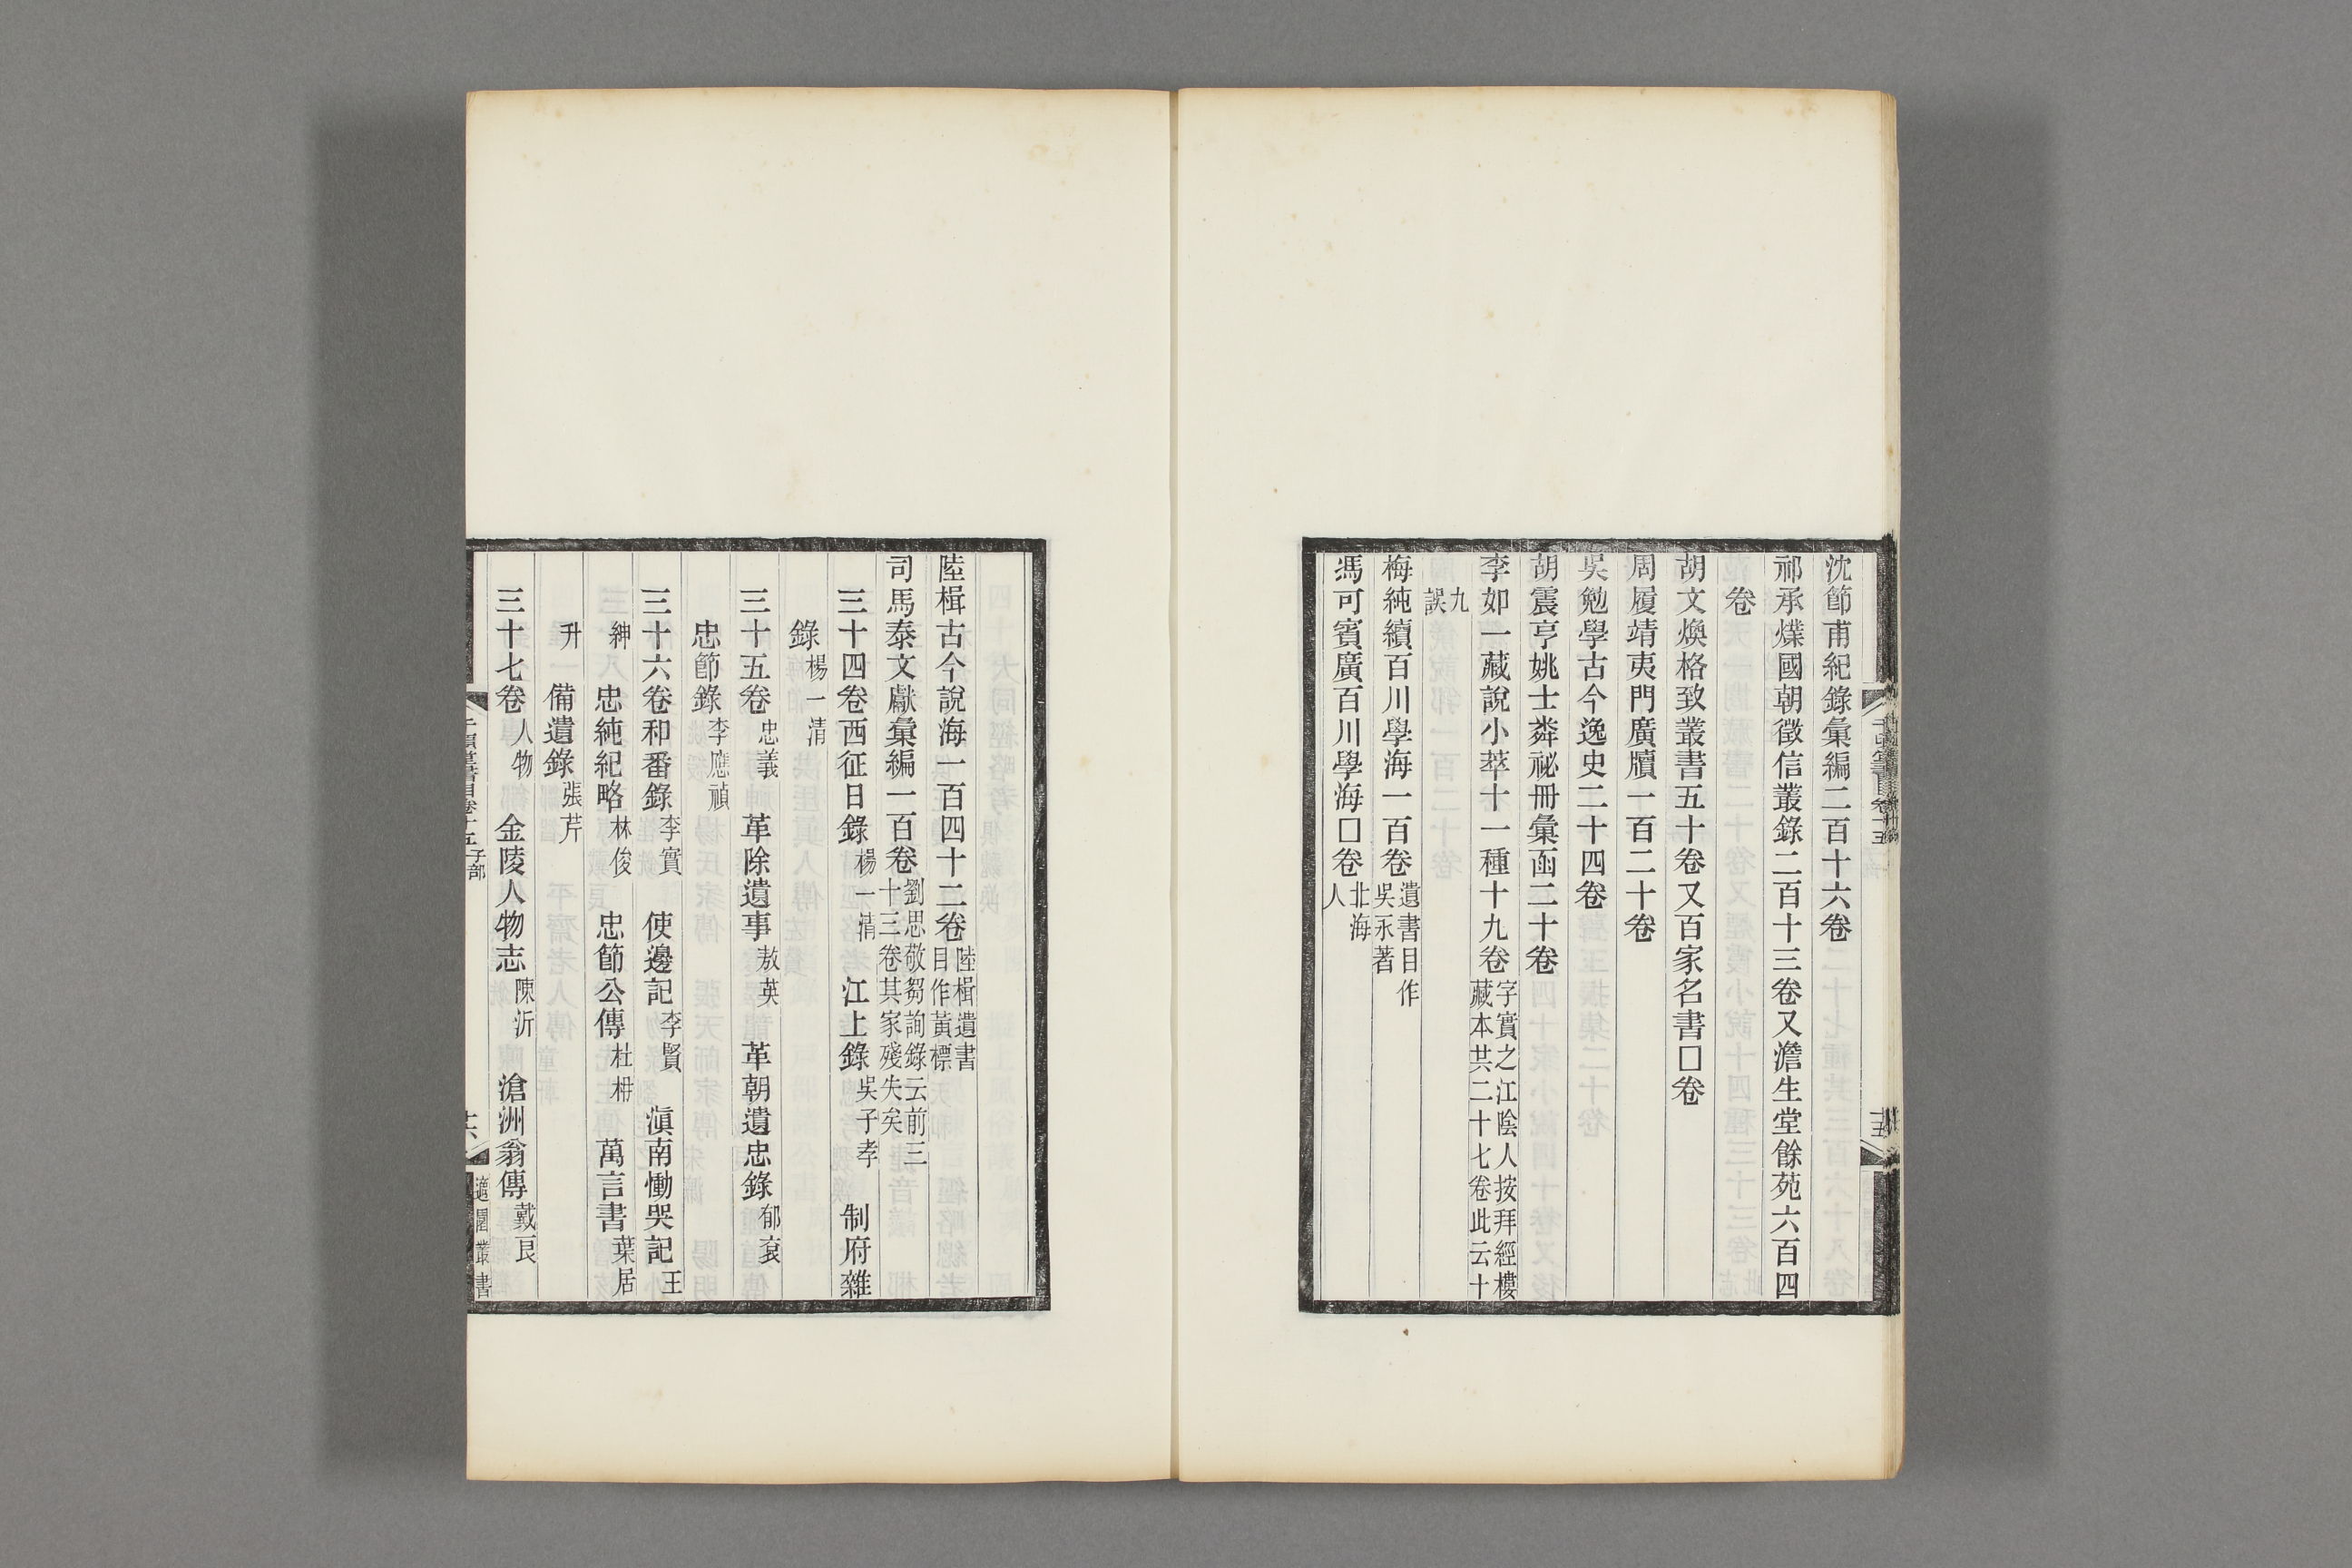 沈節甫紀錄彙編二百十六卷
祁承㸁國朝徵信叢錄二百十三卷又澹生堂餘苑六百四
卷
胡文煥格致叢書五十卷又百家名書□卷
周履靖夷門廣牘一百二十卷
吳勉學古今逸史二十四卷
胡震亨姚士粦祕冊彙函二十卷
李如一藏說小萃十一種十九卷字實之江陰人按拜經樓藏本共二十七卷此云十
九誤
梅純續百川學海一百卷遺書目作吳永著
馮可賓廣百川學海□卷北海人
陸楫古今說海一百四十二卷陸楫遺書目作黃標
司馬泰文獻彙編一百卷劉思敬芻詢錄云前三十三卷其家殘失矣
三十四卷西征日錄楊一清 江上錄吳子孝 制府雜
錄楊一清
三十五卷忠義 革除遺事敖英 革朝遺忠錄郁袞
忠節錄李應禎
三十六卷和番錄李實 使邊記李賢 滇南慟哭記王
紳 忠純紀略林俊 忠節公傳杜枏 萬言書葉居
升 備遺錄張芹
三十七卷人物 金陵人物志陳沂 滄洲翁傳戴良
千頃堂書目卷十五子部
十六
適園叢書